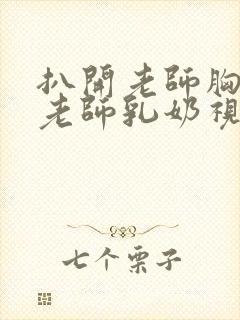 扒開老師胸
老師乳奶視
七个栗子